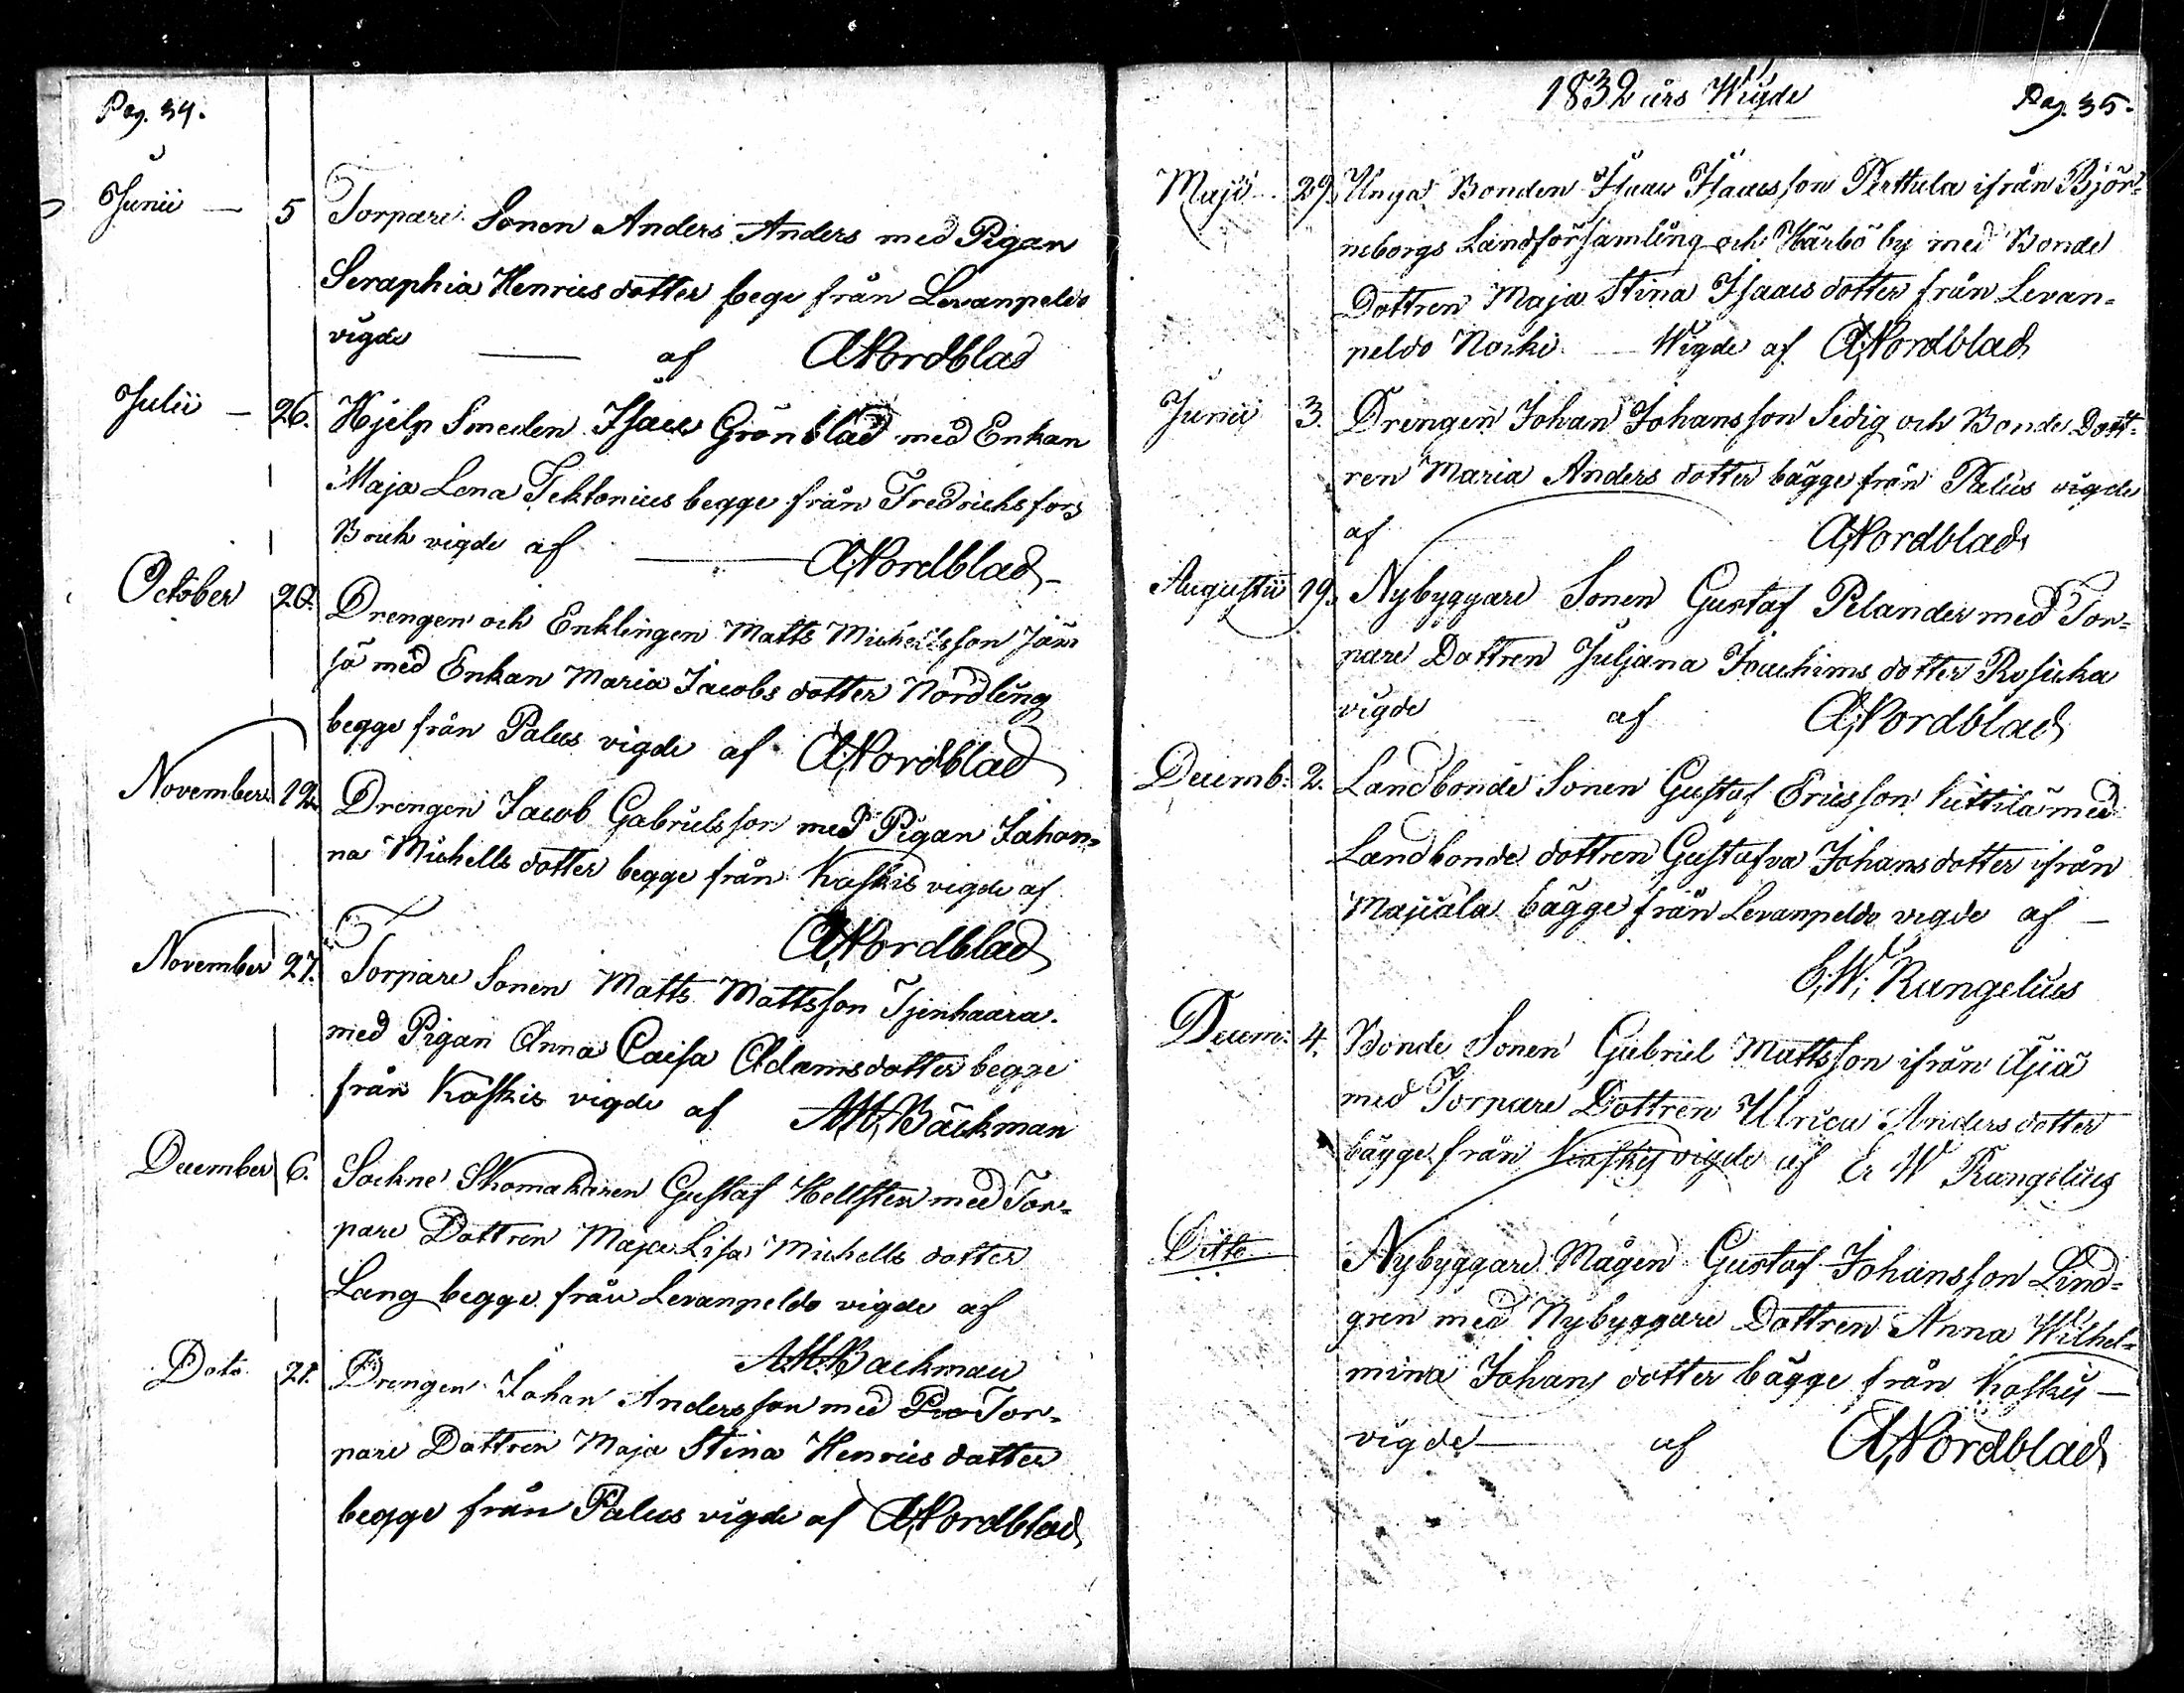 Pag. 34.
Junii — 5 Torpare Sonen Anders Anders med Pigan
Seraphia Henricsdotter bege från Levanpeldo
vigde — af ANordblad
Julii — 26. Hjelp Smeden Isaac Grönblad med Enkan
Maja Lena Tektonius begge från Fredrichsfors
Bruk vigde af — ANordblad
October 20. Drengen och Enklingen Matts Michelsson Jäm
sä med Enkan Maria Jacobs dotter Nordling
begge från Palus vigde af ANordblad
November 12. Drengen Jacob Gabrielsson med Pigan Johan-
na Michells dotter begge från Kaskis vigde af
ANordblad
November 27. Torpare Sonen Matts Mattsson Tjenhaara
med Pigan Anna Caisa Adamsdotter begge
från Kaskis vigde af AM.Bäckman
December 6. Sockne Skomakaren Gustaf Hellsten med Tor-
pare Dottren Maja Lisa Michells dotter
Lang begge från Levanpeldo vigde af
AM.Backman
Dato 21. Drengen Johan Andersson med Tor-
pare Dottren Maja Stina Henrics dotter
begge från Palus vigde af ANordblad
1832 års Wigde Pag. 35.
Maji 29. Unga Bonden Isaac Isaacsson Perttula ifrån Björ-
neborgs Landsförsamling och Härbö by med Bonde
Dottren Maja Stina Isaacs dotter från Levan-
peldo Noski — Wigde af ANordblad
Junii 3. Drengen Johan Johansson Sedig och Bonde Dott-
ren Maria Anders dotter bägge från Palus vigde
af ANordblad
Augustii 19. Nybyggare Sonen Gustaf Pelander med Tor-
pare Dottren Juljana Joachims dotter Rosicka
vigde af ANordblad
Decemb. 2. Landbonde Sonen Gustaf Ericsson med
Landbonde dottren Gustafva Johansdotter ifrån
Majiala bägge från Levanpeldo vigde af —
E.W. Rangelius
Decem: 4. Bonde Sonen Gabriel Mattsson ifrån Äjiä
med Torpare Dottren Ulrica Anders dotter
bägge från Kaskis vigde af Er W Rangelius
Ditto Nybyggare Mågen Gustaf Johansson Lind-
gren med Nybyggare Dottren Anna Wilhel-
mina Johans dotter bägge från Koskis —
vigde — af ANordblad